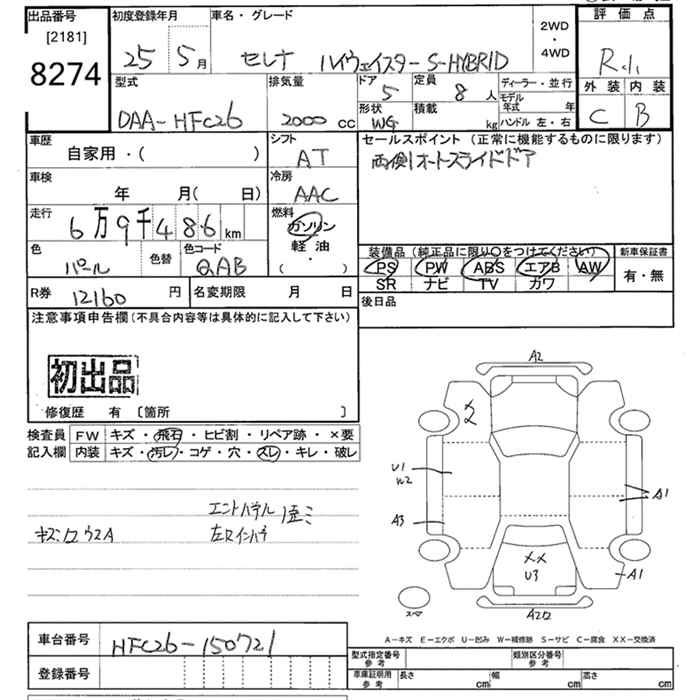 出品番号 [2181] 8274
初度登録年月 25 5月
車名・グレード セレナ ハイウェイスター S-HYBRID
2WD ・ 4WD
評価点 R-1
外装 C 内装 B
型式 DAA-HFC26
排気量 2000 cc
ドア 5
形状 WG
定員 8 人
積載 kg
ディーラー・並行
モデル年式 年
ハンドル 左・右
車歴 自家用・( )
シフト AT
セールスポイント (正常に機能するものに限ります)
両側オートスライドドア
車検 年 月( 日)
冷房 AAC
走行 6万9千486km
燃料 ガソリン 軽油 ・ ( )
色 パール
色替
色コード QAB
装備品 (純正品に限り○をつけてください)
PS PW ABS エアB AW
SR ナビ TV カワ
新車保証書 有・無
R券 12160 円
名変期限 月 日
後日品
注意事項申告欄 (不具合内容等は具体的に記入して下さい)
初出品
修復歴 有 [箇所 ]
検査員記入欄
FW キズ・飛石・ヒビ割・リペア跡・×要
内装 キズ・汚レ・コゲ・穴・スレ・キレ・破レ
エンドパネル
左リインパネ
A2
2
U1
W2
A3
A1
XX
U3
A1
スペア
A2
A-キズ E-エクボ U-凹み W-補修跡 S-サビ C-腐食 XX-交換済
車台番号 HFC26-150721
登録番号
型式指定番号 参考
類別区分番号 参考
車庫証明用 参考 長さ cm 幅 cm 高さ cm